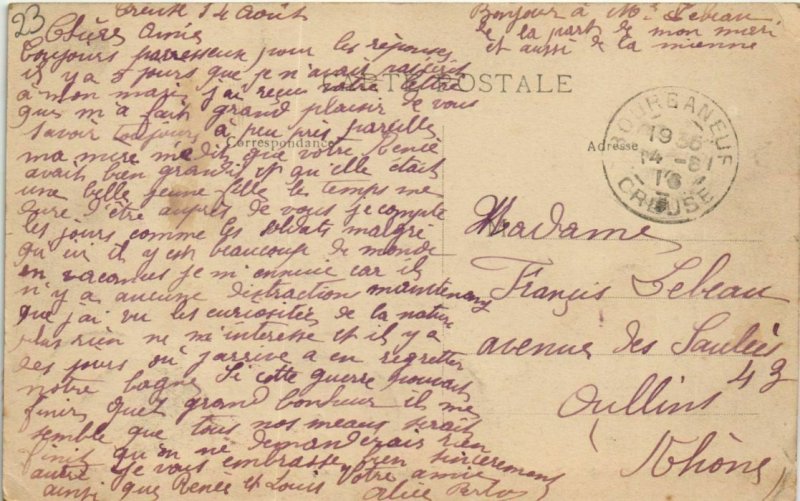 23
Creuse 14 Août
Chères Amie
toujours parresseux pour les réponses
il y a 8 jours que je n'avait
à mon mari j'ai reçu votre lettre
que m'a fait grand plaisir de vous
savoir toujours à peu pres pareilles
ma mere m'a dit que votre Renée
avait bien grandit et qu'elle était
une belle jeune fille le temps me
dure d'être auprès de vous je compte
les jours comme les soldats malgré
qu'ici il y est beaucoup de monde
en vacances je m'ennuie car il
n'y a aucune distraction maintenant
que j'ai vu les curiosités de la nature
plus rien ne m'interesse et il y a
des jours où j'arrive a en regretter
notre bagne Si cette guerre pouvait
finir quel grand bonheur il me
semble que tous nos meaux serait
finit qu'on ne demanderais rien
autre je vous embrasse bien sincèrement
ainsi que Renée et Louis votre amie
Alice
Bonjour à Mr Lebeau
de la part de mon mari
et aussi de la mienne
CARTE POSTALE
Correspondance
Adresse
BOURGANEUF
14 -8
CREUSE
Madame
Françis Lebeau
avenue des Saulées
49
Oullins
Rhône